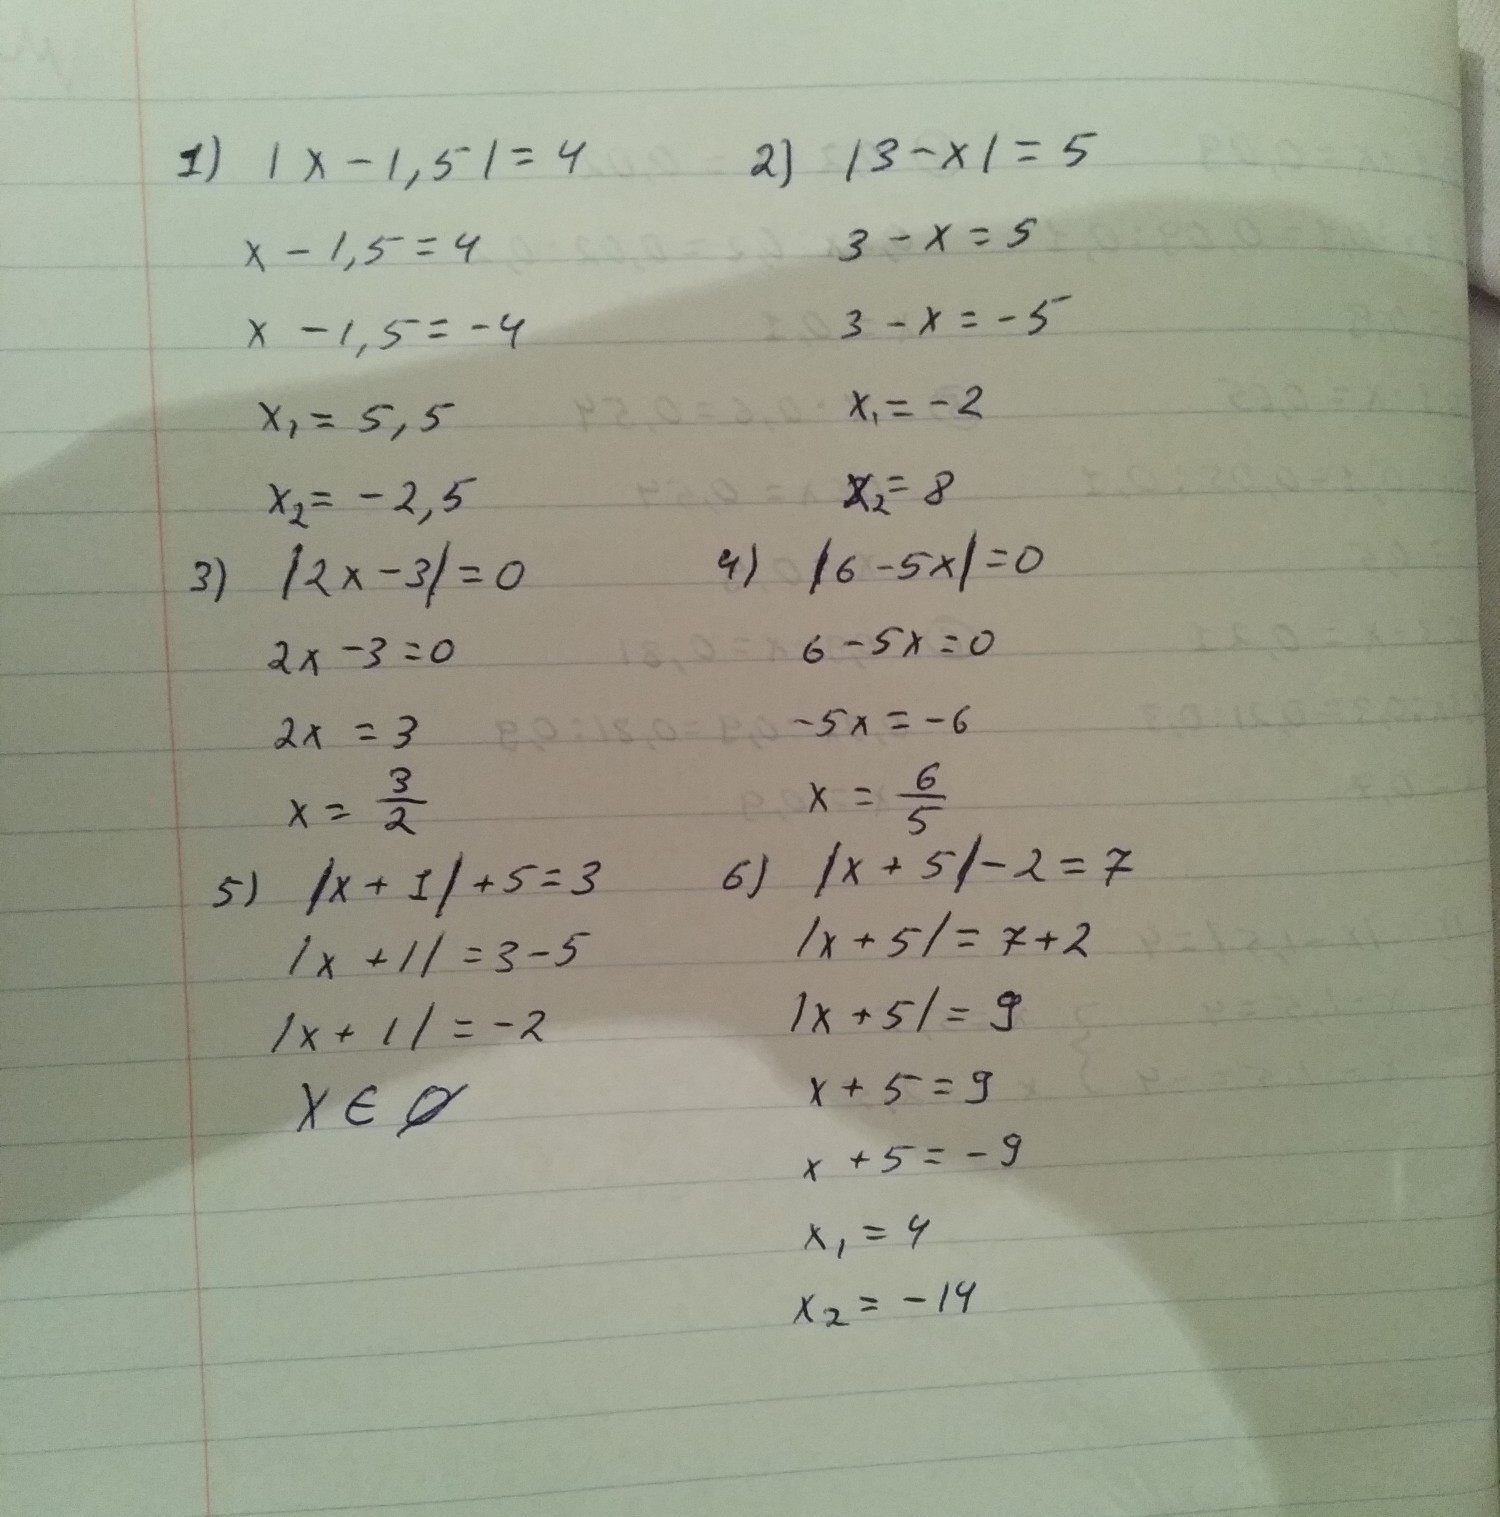 1) |x-1,5|=4
x-1,5=4
x-1,5=-4
x₁=5,5
x₂=-2,5
2) |3-x|=5
3-x=5
3-x=-5
x₁=-2
x₂=8
3) |2x-3|=0
2x-3=0
2x=3
x=3/2
4) |6-5x|=0
6-5x=0
-5x=-6
x=6/5
5) |x+1|+5=3
|x+1|=3-5
|x+1|=-2
x∈∅
6) |x+5|-2=7
|x+5|=7+2
|x+5|=9
x+5=9
x+5=-9
x₁=4
x₂=-14